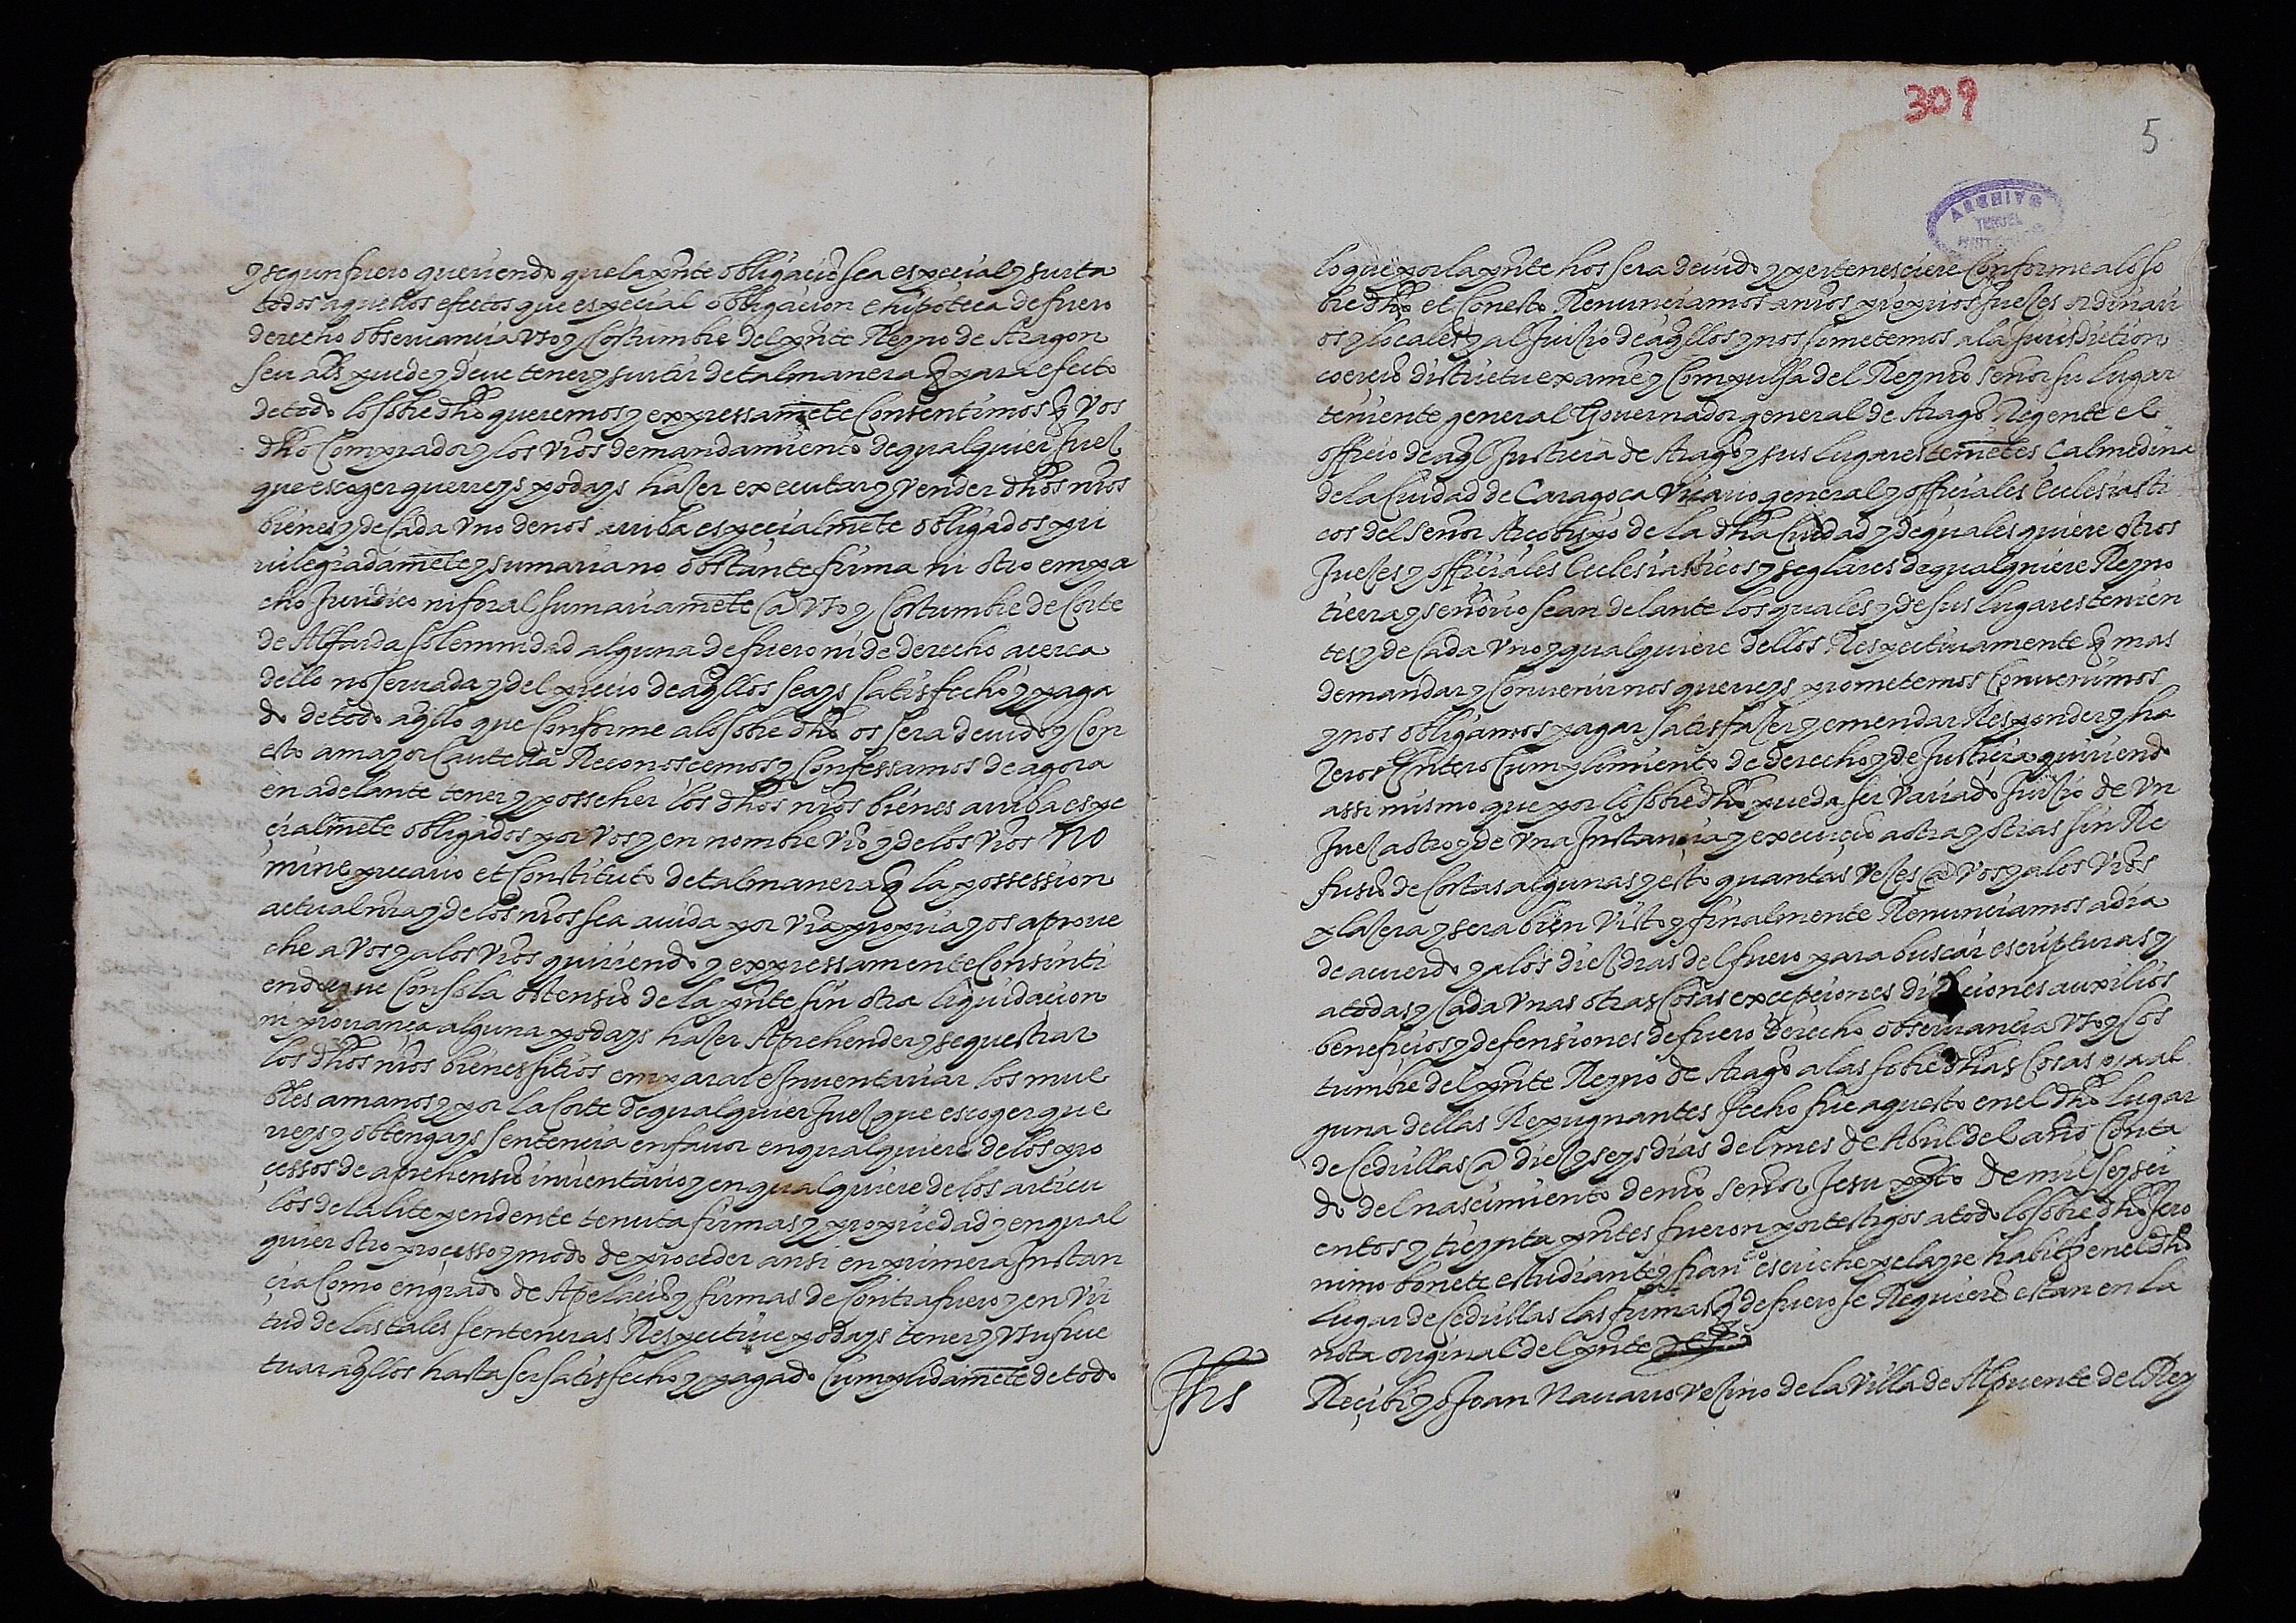 y segun fuero queriendo que la pñte obligacion sea especial y surta
todos aquellos efectos que especial obligacion e hipoteca de fuero
derecho observancia uso y costumbre del pñte Reyno de Aragon
seu als puede y deve tener y surtir de tal manera q̃ para efecto
de todo lo sobre dho queremos y expressamẽte consentimos q̃ vos
dho comprador y los vros de mandamiento de qualquier juez
que escoger querreys podays hazer executar y vender dhos nros
bienes y de cada uno de nos arriba especialmẽte obligados pri
vilegiadamẽte y sumaria no obstante firma ni otro empa
cho juridico ni foral sumariamẽte @ uso y costumbre de corte
de Alfarda solemnidad alguna de fuero ni de derecho acerca
dello no servada y del precio de aq̃llos seays satisfecho y paga
do de todo aq̃llo que conforme a lo sobre dho os sera devido y con
esto a mayor cautella Reconoscemos y confessamos de agora
en adelante tener y posseher los dhos nros bienes arriba espe
cialmẽte obligados por vos y en nombre vro y de los vros No
mine precario et constituto de tal manera q̃ la possession
actual nra y de los nros sea avida por vra propria y os aprove
che a vos y a los vros quiriendo y expressamente consinti
endo que con sola ostensiõ de la pñte sin otra liquidacion
ni provança alguna podays hazer Aprehender y sequestrar
los dhos nros bienes sitios emparar e Inventariar los mue
bles a manos y por la corte de qualquier juez que escoger que
rreys y obtengays sentencia en favor en qualquiere de los pro
cessos de aprehensiõ inventario y en qualquiere de los articu
los de la lite pendente tenuta firmas y propriedad y en qual
quier otro processo y modo de proceder ansi en primera Instan
cia como en grado de Apelaciõ y firmas de contrafuero y en vir
tud de las tales sentencias Respective podays tener y usufruc
tuar aq̃llos hasta ser satisfecho y pagado cumplidamẽte de todo
309
5
ARCHIVO
TERUEL
lo que por la pñte hos sera devido y pertenesciere conforme a lo so
bre dho et con esto Renunciamos a nros proprios juezes ordinari
os y locales y al juizio de aq̃llos y nos sometemos a la jurisdiction
coerciõ districtu examẽ y compulsa del Rey nro señor su lugar
teniente general Governador general de Aragõ Regente el
officio de aq̃l Justicia de Aragõ y sus lugares teniẽtes çalmedina
de la ciudad de Caragoça vicario general y officiales Eclesiasti
cos del señor Arcobispo de la dha ciudad y de qualesquiere otros
Juezes y officiales Eclesiasticos y seglares de qualquiere Reyno
tierra y señorio sean delante los quales y de sus lugares tenien
tes y de cada uno y qualquiere dellos Respectivamente q̃ mas
demandar y convenirnos querreys prometemos convenimos
y nos obligamos pagar satisfazer y emendar Responder y ha
zeros Entero cumplimiento de derecho y de Justicia quiriendo
assi mismo que por lo sobre dho pueda ser variado Juizio de un
Juez a otro y de una Instancia y execuciõ a otra y otras sin Re
fusiõ de costas algunas y esto quantas vezes @ vos y a los vros
plazera y sera bien visto y finalmente Renunciamos a dia
de acuerdo y a los diez dias del fuero para buscar escripturas y
a todas y cada unas otras cosas excepciones dilaciones auxilios
beneficios y defensiones de fuero derecho observancia uso y cos
tumbre del pñte Reyno de Aragõ a las sobre dhas cosas o a al
guna dellas Repugnantes fecho fue aquesto en el dho lugar
de Cedrillas @ diez y seys dias del mes de Abril del año conta
do del nascimiento de nro señor Jesu xpto de mil seysci
entos y treynta pñtes fueron por testigos a todo lo sobre dho Jero
nimo bonete estudiante y franco escriche pelayre habitãtes en el dho
lugar de Cedrillas las firmas q̃ de fuero se Requierẽ estan en la
nota original del pñte
Jhs Recibi yo Joan Navarro vezino de la villa de Alpuente del Rey